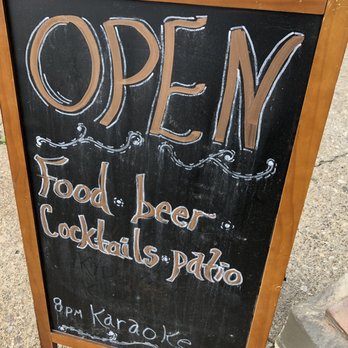 OPEN
Food · beer ·
Cocktails · patio
8pm Karaoke